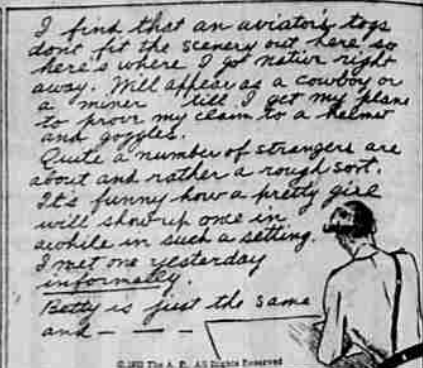 I find that an aviator's togs
don't fit the scenery out here, so
here's where I got native right
away. Will appear as a cowboy or
a miner till I get my plane
to prove my claim to a helmet
and goggles.
Quite a number of strangers are
about and rather a rough sort.
It's funny how a pretty girl
will show up once in
awhile in such a setting.
I met one yesterday
informally.
Betty is just the same
and — — — —
The A. P. All Rights Reserved